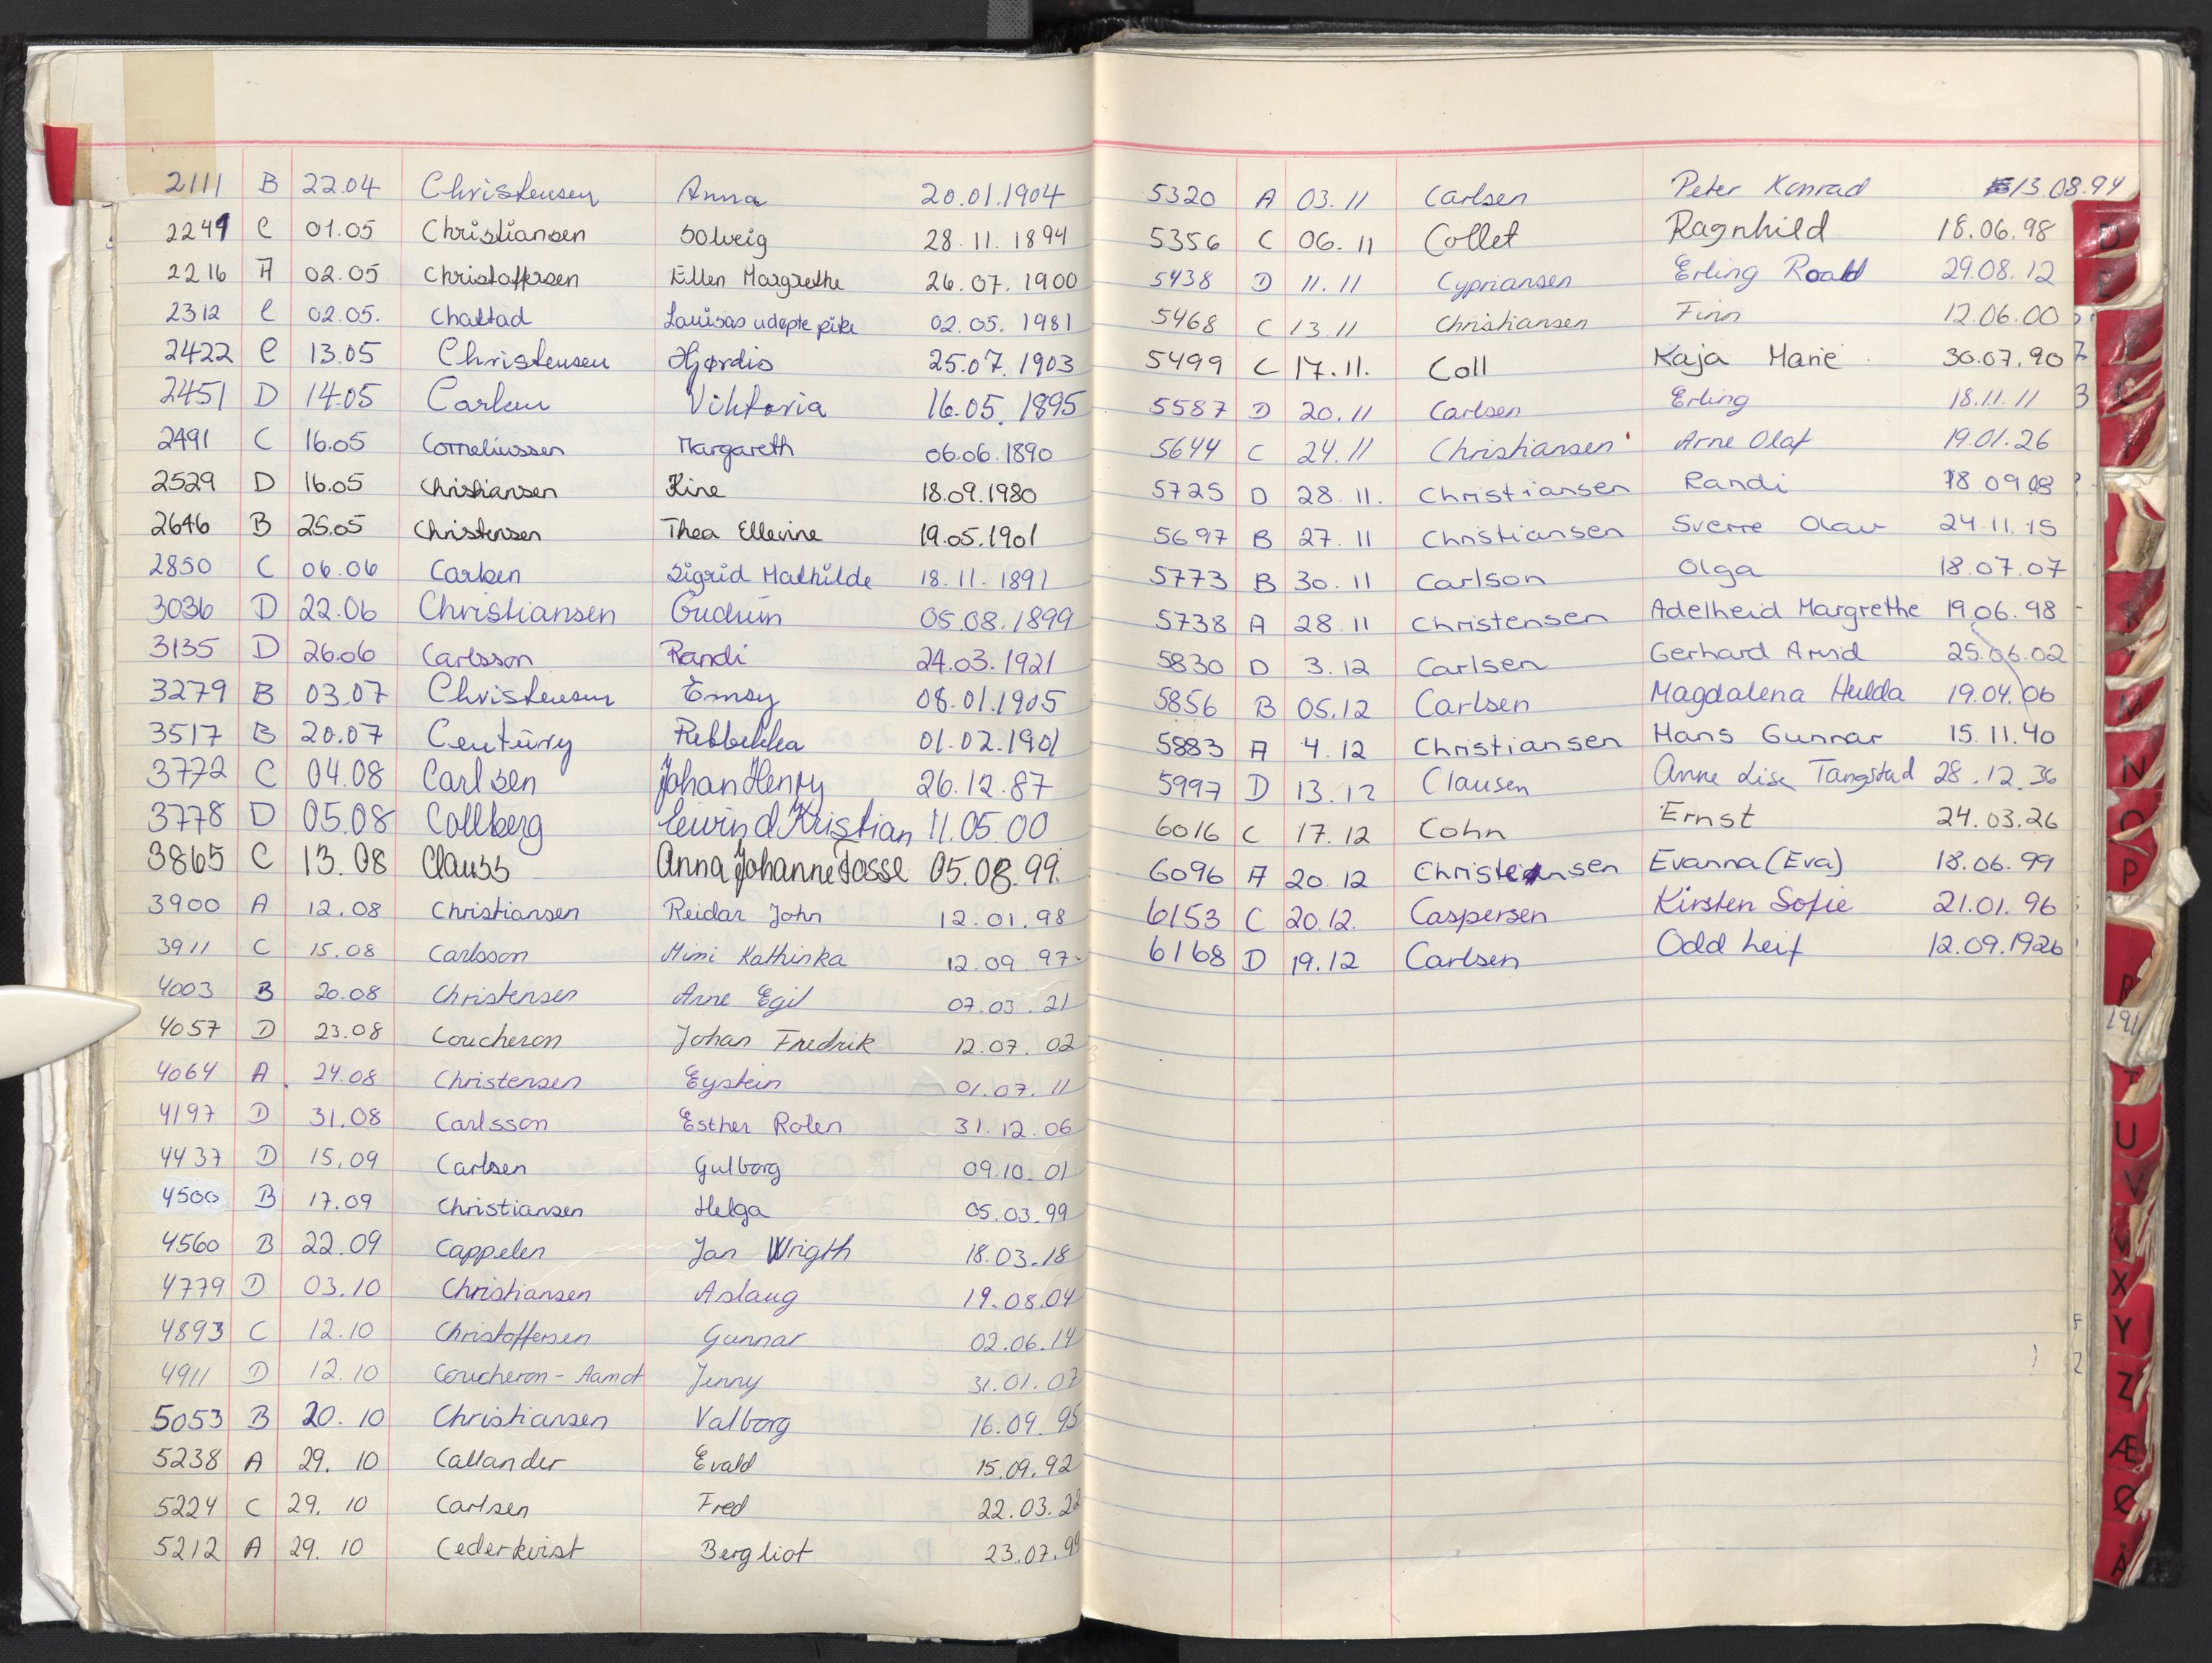 2111 B 22.04 Christensen Anna 20.01.1904
2241 C 01.05 Christiansen Solveig 28.11.1894
2216 A 02.05 Christoffersen Ellen Margrethe 26.07.1900
2312 C 02.05. Chaltad Louisas udøpte pike 02.05.1981
2422 C 13.05 Christensen Hjørdis 25.07.1903
2451 D 14.05 Carlsen Viktoria 16.05.1895
2491 C 16.05 Corneliussen Margareth 06.06.1890
2529 D 16.05 Christiansen Kine 18.09.1980
2646 B 25.05 Christensen Thea Ellevine 19.05.1901
2850 C 06.06 Carlsen Sigrid Mathilde 18.11.1891
3036 D 22.06 Christiansen Gudrun 05.08.1899
3135 D 26.06 Carlsson Randi 24.03.1921
3279 B 03.07 Christensen Emsy 08.01.1905
3517 B 20.07 Century Rebbekka 01.02.1901
3772 C 04.08 Carlsen Johan Henry 26.12.87
3778 D 05.08 Collberg Eivind Kristian 11.05.00
3865 C 13.08 Clauss Anna Johanne Fosse 05.08.99.
3900 A 12.08 Christiansen Reidar John 12.01.98
3911 C 15.08 Carlsson Mimi Kathinka 12.09.97
4003 B 20.08 Christensen Arne Egil 07.03.21
4057 D 23.08 Coucheron Johan Fredrik 12.07.02
4064 A 24.08 Christensen Eystein 01.07.11
4197 D 31.08 Carlsson Esther Rolen 31.12.06
4437 D 15.09 Carlsen Gulborg 09.10.01
4500 B 17.09 Christiansen Helga 05.03.99
4560 B 22.09 Cappelen Jan Wrigth 18.03.18
4779 D 03.10 Christiansen Aslaug 19.08.04
4893 C 12.10 Christoffersen Gunnar 02.06.14
4911 D 12.10 Coucheron-Aamot Jenny 31.01.07
5053 B 20.10 Christiansen Valborg 16.09.95
5238 A 29.10 Callander Evald 15.09.92
5224 C 29.10 Carlsen Fred 22.03.22
5212 A 29.10 Cederkvist Bergliot 23.07.99
5320 A 03.11 Carlsen Peter Konrad 13.08.94
5356 C 06.11 Collet Ragnhild 18.06.98
5438 D 11.11 Cypriansen Erling Roald 29.08.12
5468 C 13.11 Christiansen Finn 12.06.00
5499 C 17.11. Coll Kaja Marie 30.07.90
5587 D 20.11 Carlsen Erling 18.11.11
5644 C 24.11 Christiansen Arne Olaf 19.01.26
5725 D 28.11. Christiansen Randi 18 09 08
5697 B 27.11 Christiansen Sverre Olav 24.11.15
5773 B 30.11 Carlson Olga 18.07.07
5738 A 28.11 Christensen Adelheid Margrethe 19.06.98
5830 D 3.12 Carlsen Gerhard Arvid 25.06.02
5856 B 05.12 Carlsen Magdalena Hulda 19.04.06
5883 A 4.12 Christiansen Hans Gunnar 15.11.40
5997 D 13.12 Clausen Anne Lise Tangstad 28.12.36
6016 C 17.12 Cohn Ernst 24.03.26
6096 A 20.12 Christensen Evanna (Eva) 18.06.99
6153 C 20.12. Caspersen Kirsten Sofie 21.01.96
6168 D 19.12 Carlsen Odd Leif 12.09.1926
D
N
O
P
R
191
T
U
V
W
X
Y
Z
Æ
Ø
Å